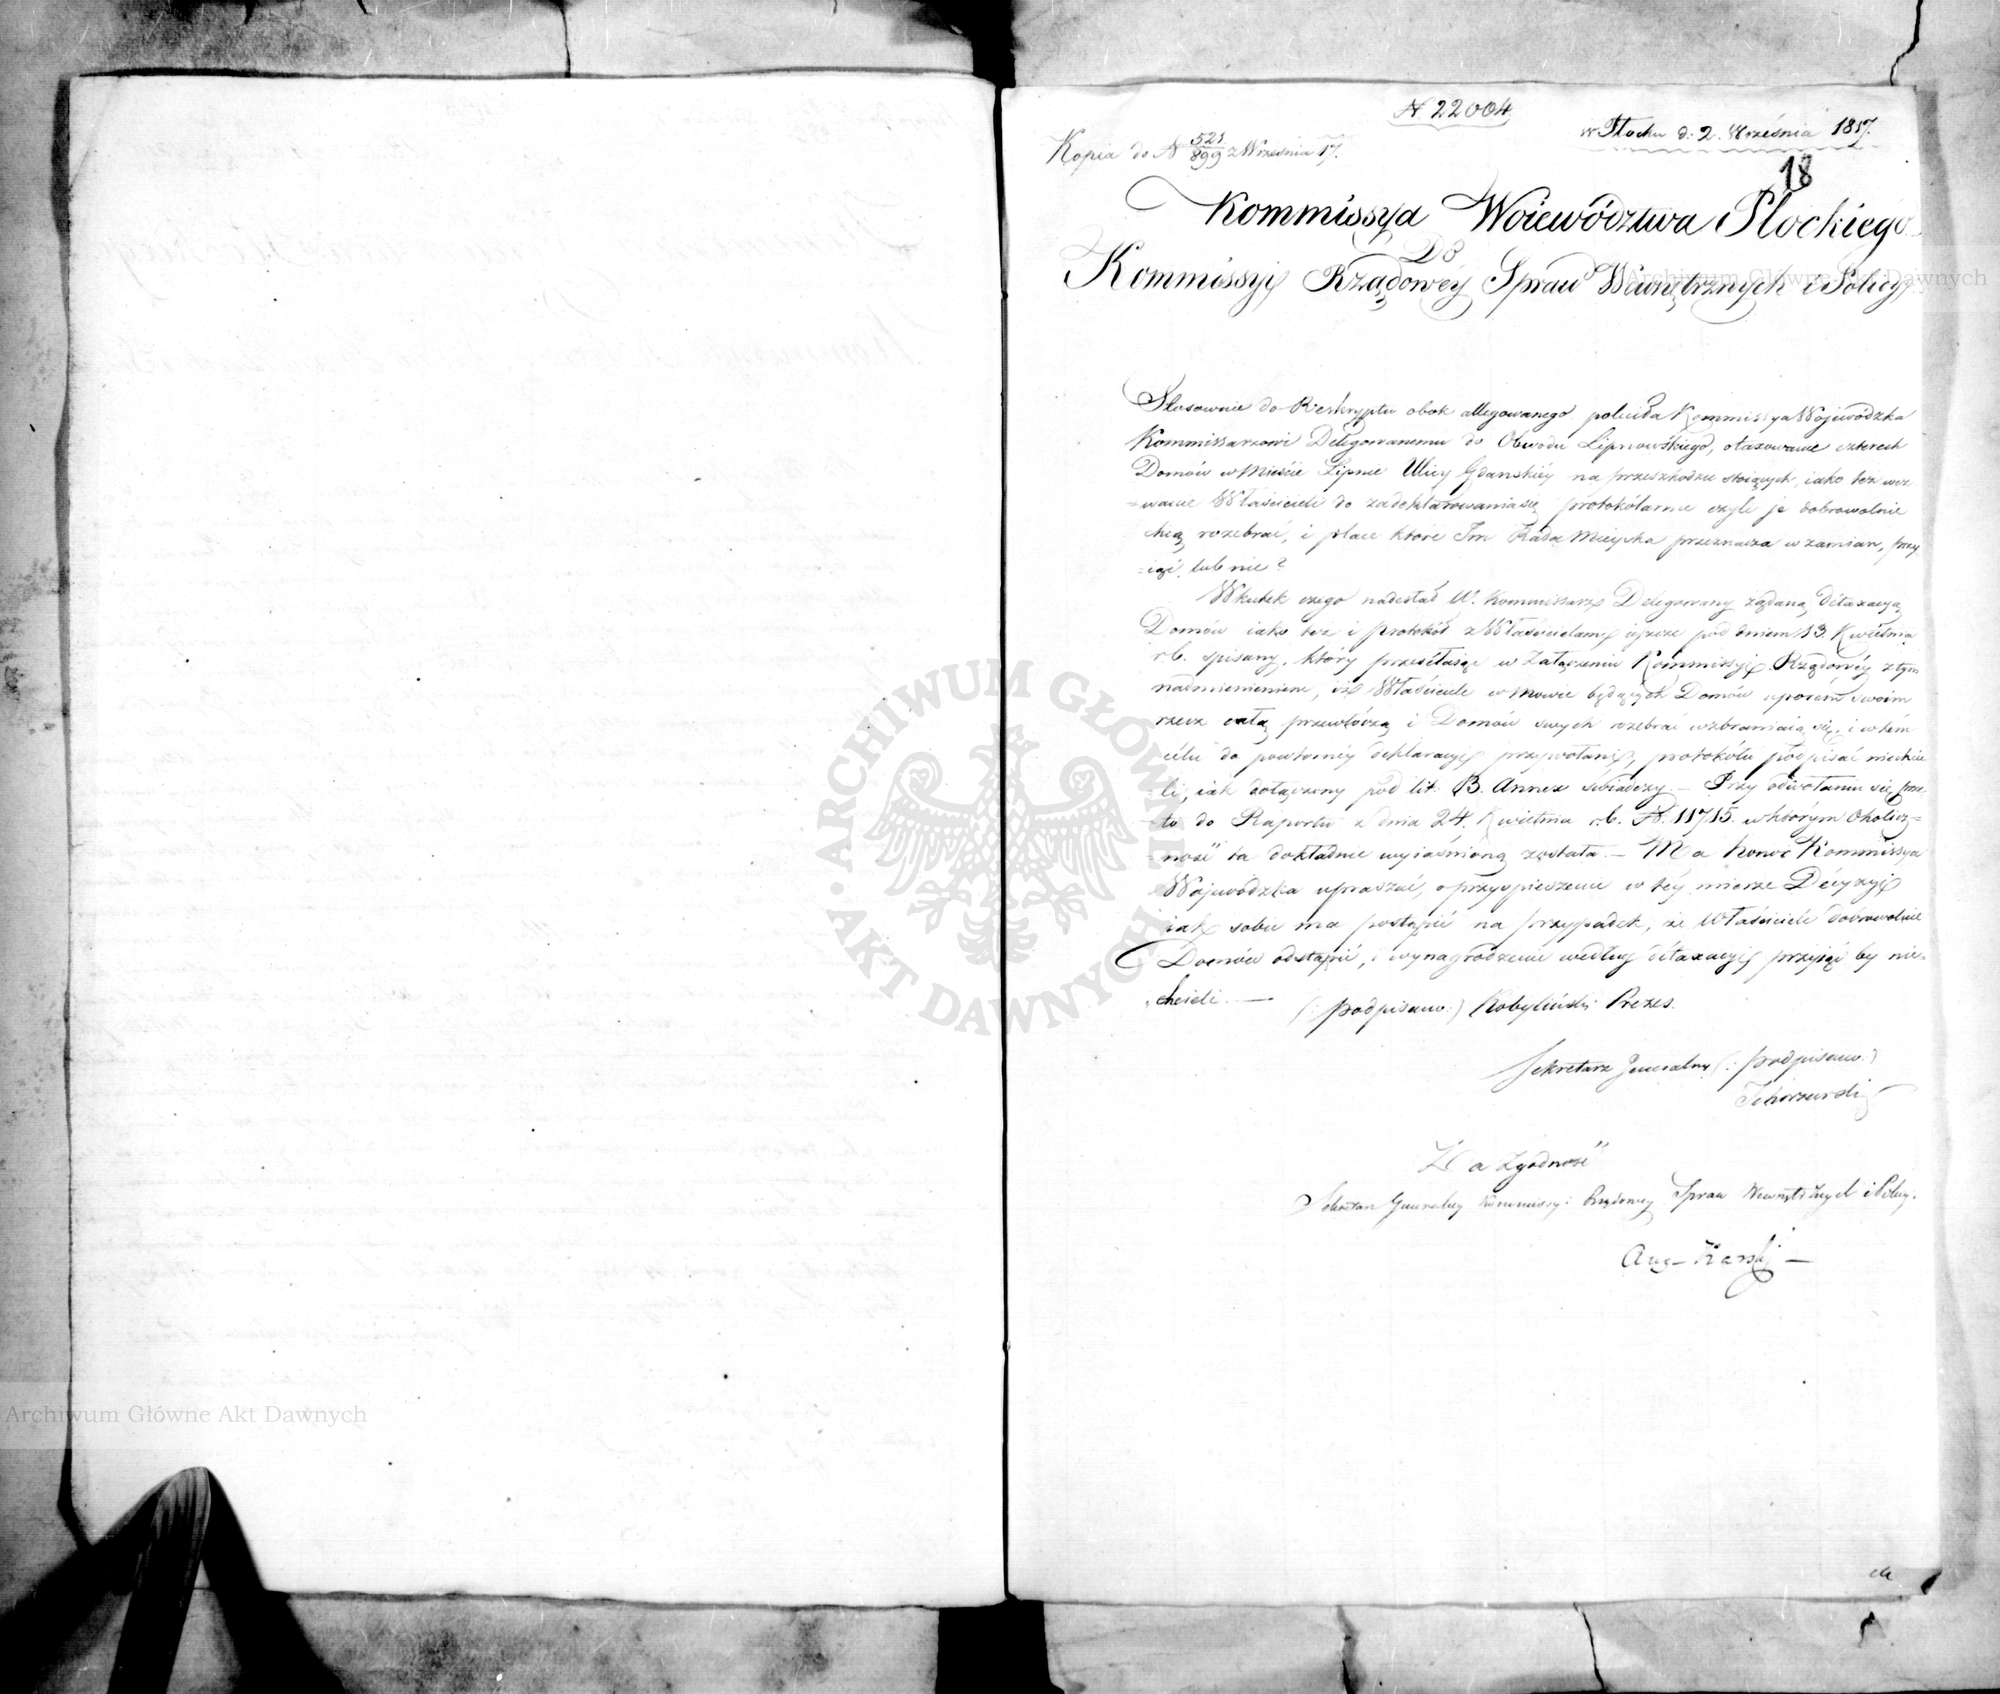 N 22004
w Płocku d: 2. Września 1817.
Kopia do N 521/899 z Września 17.
18
Kommissya Woiewództwa Płockiego
Do
Kommissyi Rządowéy Spraw Wewnętrznych i Policyi
Stosownie do Reskryptu obok allegowanego poleciła Kommissya Wojewodzka
Kommissarzowi Delegowanemu do Obwodu Lipnowskiego, otaxowanie czterech
Domów w Mieście Lipnie Ulicy Gdanskiéy na przeszkodzie stoiących, iako też wez
=wanie Właścicieli do zadeklarowania się protokólarnie czyli je dobrowolnie
chcą rozebrać, i place które Im Rada Mieyska przeznacza w zamian, przy
=iąć, lub nie?
Wskutek czego nadesłał W. Kommissarz Delegowany żądaną détaxacyą
Domów iako też i protokół z Właścicielami ieszcze pod dniem 13. Kwietnia
r.b. spisany, który przesełaiąc w załączeniu Kommissyi Rządowéy z tym
nadmienieniem, iż Właściciele w mowie będących Domów uporem swoim
rzecz całą przewłóczą i Domów swych rozebrać wzbraniaią się, i w tém
célu do powtornéy deklaracyi przywołani, protokółu podpisać niechcie
=li, iak dołączony pod lit: B. Annex świadczy. — Przy odwołaniu się prze=
=to do Raportu z dnia 24. Kwietnia r.b. N. 11715. w którym Okolicz=
=ność ta dokładnie wyiaśnioną została. — Ma honor Kommissya
Wojewódzka upraszać, o przyspieszenie w téy mierze Décyzyi
iak sobie ma postąpić na przypadek, że Właściciele dobrowolnie
Domów odstąpić, i wynagrodzenie według détaxacyi przyiąć by nie=
=chcieli. —
(: podpisano :) Kobyliński Prezes.
Sekretarz Jeneralny (: podpisano :)
Za Zgodność
Sekretarz Generalny Kommissyi Rządowey Spraw Wewnętrznych i Policy.
Aug– Karski —
Archiwum Główne Akt Dawnych
Archiwum Główne Akt Dawnych
ARCHIWUM GŁÓWNE • AKT DAWNYCH •